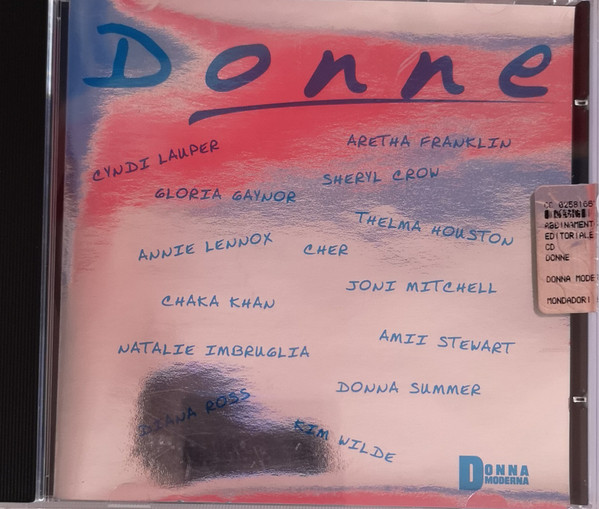 Donne
CYNDI LAUPER
ARETHA FRANKLIN
GLORIA GAYNOR
SHERYL CROW
ANNIE LENNOX
CHER
THELMA HOUSTON
CHAKA KHAN
JONI MITCHELL
NATALIE IMBRUGLIA
AMII STEWART
DIANA ROSS
DONNA SUMMER
KIM WILDE
DONNA
MODERNA
ABBINAMENT
EDITORIALE
CD
DONNE
DONNA MODE
MONDADORI